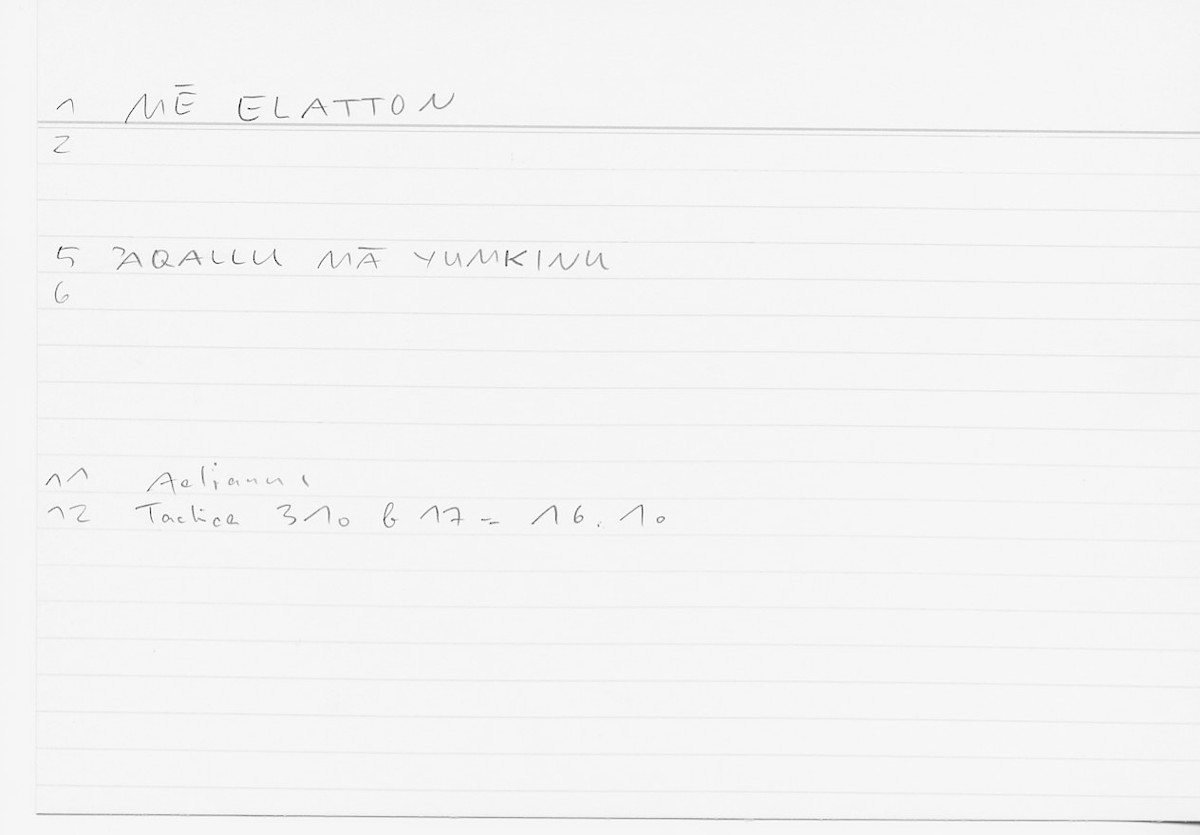 1 MĒ ELATTON
2
5 ʾAQALLU MĀ YUMKINU
6
11 Aelianus
12 Tactica 310 b 17 = 16.10